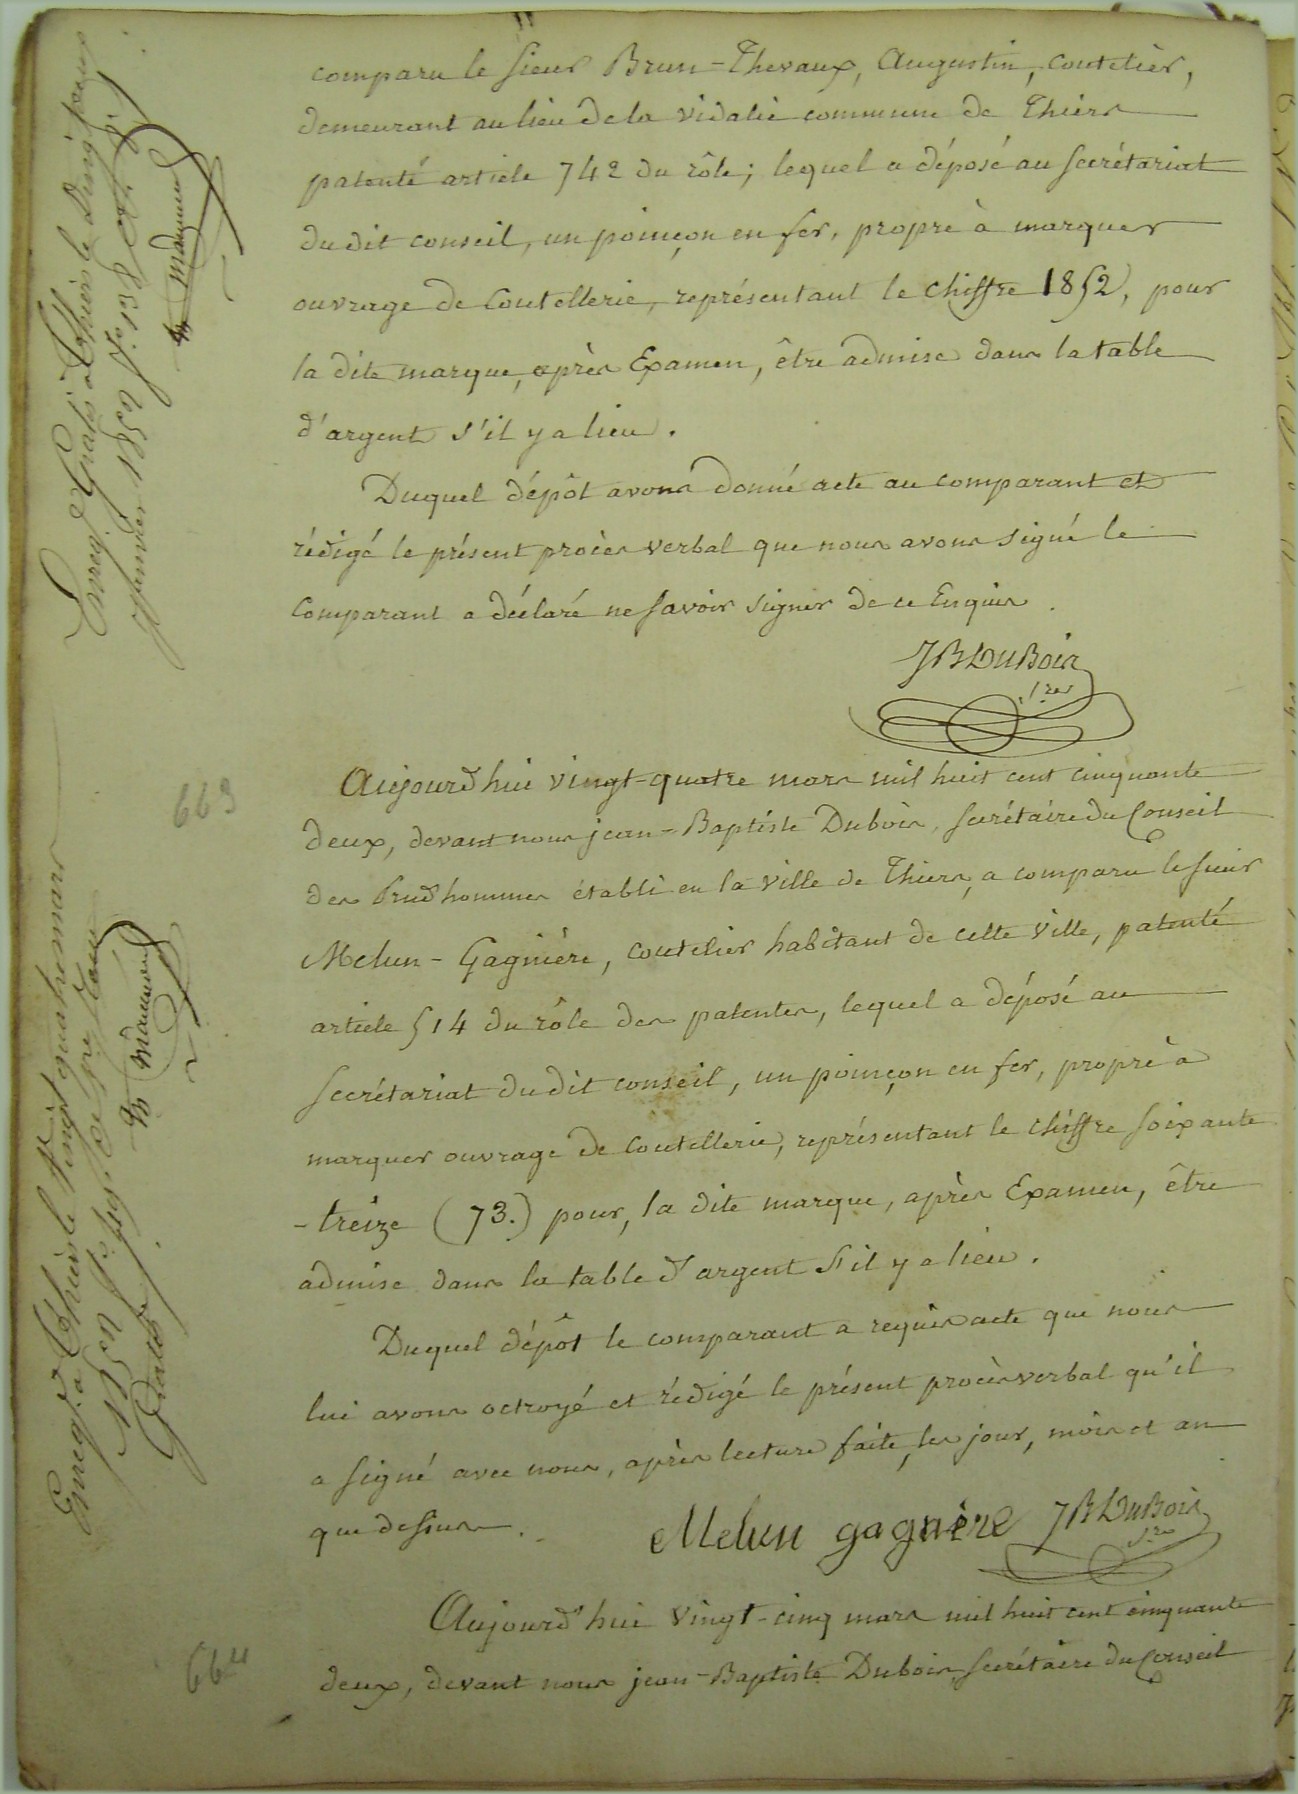 comparu le sieur Brun-Thevaux, Augustin, coutelier,
demeurant au lieu de la vidalie commune de Thiers
patenté article 742 du rôle; lequel a déposé au secrétariat
du dit conseil, un poinçon en fer, propre à marquer
ouvrage de Coutellerie, représentant le chiffre 1852, pour
la dite marque, après Examen, être admise dans la table
d'argent s'il y a lieu.
Duquel dépôt avons donné acte au comparant et
rédigé le présent procès verbal que nous avons signé le
Comparant a déclaré ne savoir signer de ce Enquis.
JB DuBois
s.re
Enreg.é Gratis à Thiers le
janvier 1852 f.o 138
663
Aujourd'hui vingt-quatre mars mil huit cent cinquante
deux, devant nous jean-Baptiste Dubois, secrétaire du Conseil
des Prud'hommes établi en la ville de Thiers, a comparu le sieur
Melun-Gagnière, coutelier habitant de cette ville, patenté
article 514 du rôle des patentes, lequel a déposé au
secrétariat du dit conseil, un poinçon en fer, propre à
marquer ouvrage de Coutellerie, représentant le chiffre soixante
-treize (73.) pour, la dite marque, après Examen, être
admise dans la table d'argent s'il y a lieu.
Duquel dépôt le comparant a requis acte que nous
lui avons octroyé et rédigé le présent procès verbal qu'il
a signé avec nous, après lecture faite, les jour, mois et an
que dessus.
Melun gagnère JB DuBois
s.re
Enreg.é à Thiers le Vingt quatre mars
1852
Gratis
664
Aujourd'hui vingt-cinq mars mil huit cent cinquante
deux, devant nous jean-Baptiste Dubois, secrétaire du Conseil